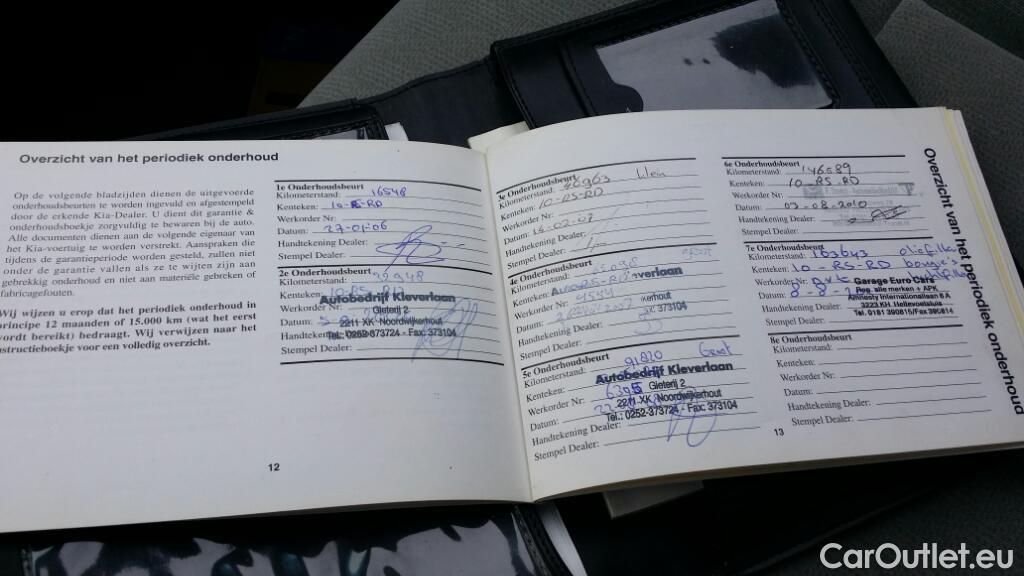 Overzicht van het periodiek onderhoud
Op de volgende bladzijden dienen de uitgevoerde
onderhoudsbeurten te worden ingevuld en afgestempeld
door de erkende Kia-Dealer. U dient dit garantie &
onderhoudsboekje zorgvuldig te bewaren bij de auto.
Alle documenten dienen aan de volgende eigenaar van
het Kia-voertuig te worden verstrekt. Aanspraken die
tijdens de garantieperiode worden gesteld, zullen niet
onder de garantie vallen als ze te wijten zijn aan
gebrekkig onderhoud en niet aan materiële gebreken of
fabricagefouten.
Wij wijzen u erop dat het periodiek onderhoud in
principe 12 maanden of 15.000 km (wat het eerst
wordt bereikt) bedraagt. Wij verwijzen naar het
instructieboekje voor een volledig overzicht.
12
1e Onderhoudsbeurt
Kilometerstand: 16548
Kenteken: 10-RS-RD
Werkorder Nr:
Datum: 27-01-06
Handtekening Dealer:
Stempel Dealer:
2e Onderhoudsbeurt
Kilometerstand: 32948
Kenteken: 10-RS-RD
Werkorder Nr:
Datum:
Handtekening
Stempel Dealer:
Autobedrijf Kleverlaan
Gieterij 2
2211 XK Noordwijkerhout
Tel.: 0252-373724 - Fax: 373104
3e Onderhoudsbeurt
Kilometerstand: klein
Kenteken: 10-RS-RD
Werkorder Nr:
Datum: 14-02-07
Handtekening Dealer:
Stempel Dealer:
4e Onderhoudsbeurt
Kilometerstand:
Kenteken:
Werkorder Nr: 4554
Datum:
Handtekening Dealer:
Stempel Dealer:
5e Onderhoudsbeurt
Kilometerstand: 91820 Groot
Kenteken:
Werkorder Nr: 6395
Datum:
Handtekening Dealer:
Stempel Dealer:
Autobedrijf Kleverlaan
Gieterij 2
2211 XK Noordwijkerhout
Tel.: 0252-373724 - Fax: 373104
6e Onderhoudsbeurt
Kilometerstand: 146089
Kenteken: 10-RS-RD
Werkorder Nr
Datum: 02-08-2010
Handtekening Dealer:
Stempel Dealer:
7e Onderhoudsbeurt
Kilometerstand: 163643 oliefilter
Kenteken: 10-RS-RD
Werkorder Nr:
Datum: 8-8-
Handtekening
Stempel Dealer:
Garage Euro Cars
Rep. alle merken + APK
Amnesty Internationallaan 6 A
3223 KH Hellevoetsluis
Tel. 0181 390815/Fax 390814
8e Onderhoudsbeurt
Kilometerstand:
Kenteken:
Werkorder Nr:
Datum:
Handtekening Dealer:
Stempel Dealer:
13
Overzicht van het periodiek onderhoud
CarOutlet.eu